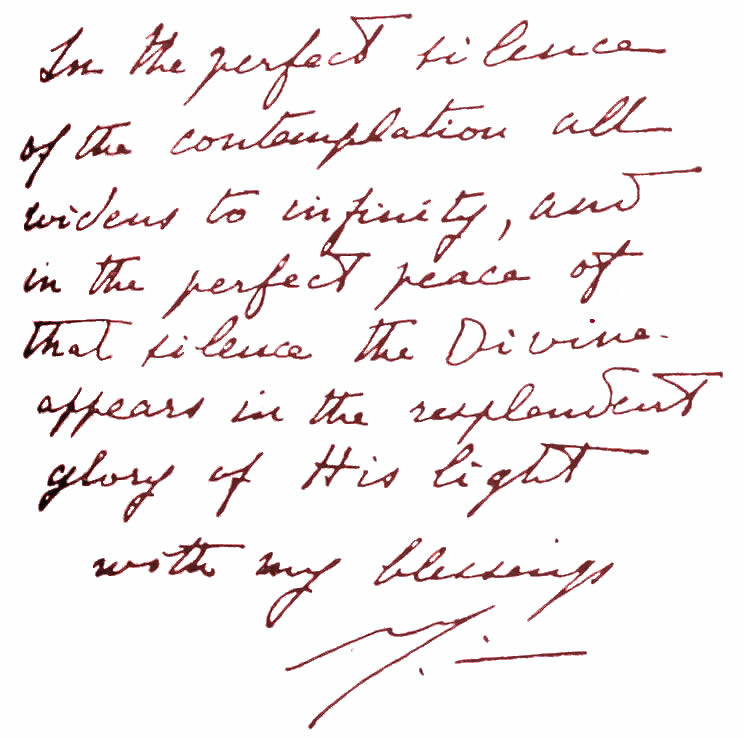 In the perfect silence
of the contemplation all
widens to infinity, and
in the perfect peace of
that silence the Divine
appears in the resplendent
glory of His light
with my blessings